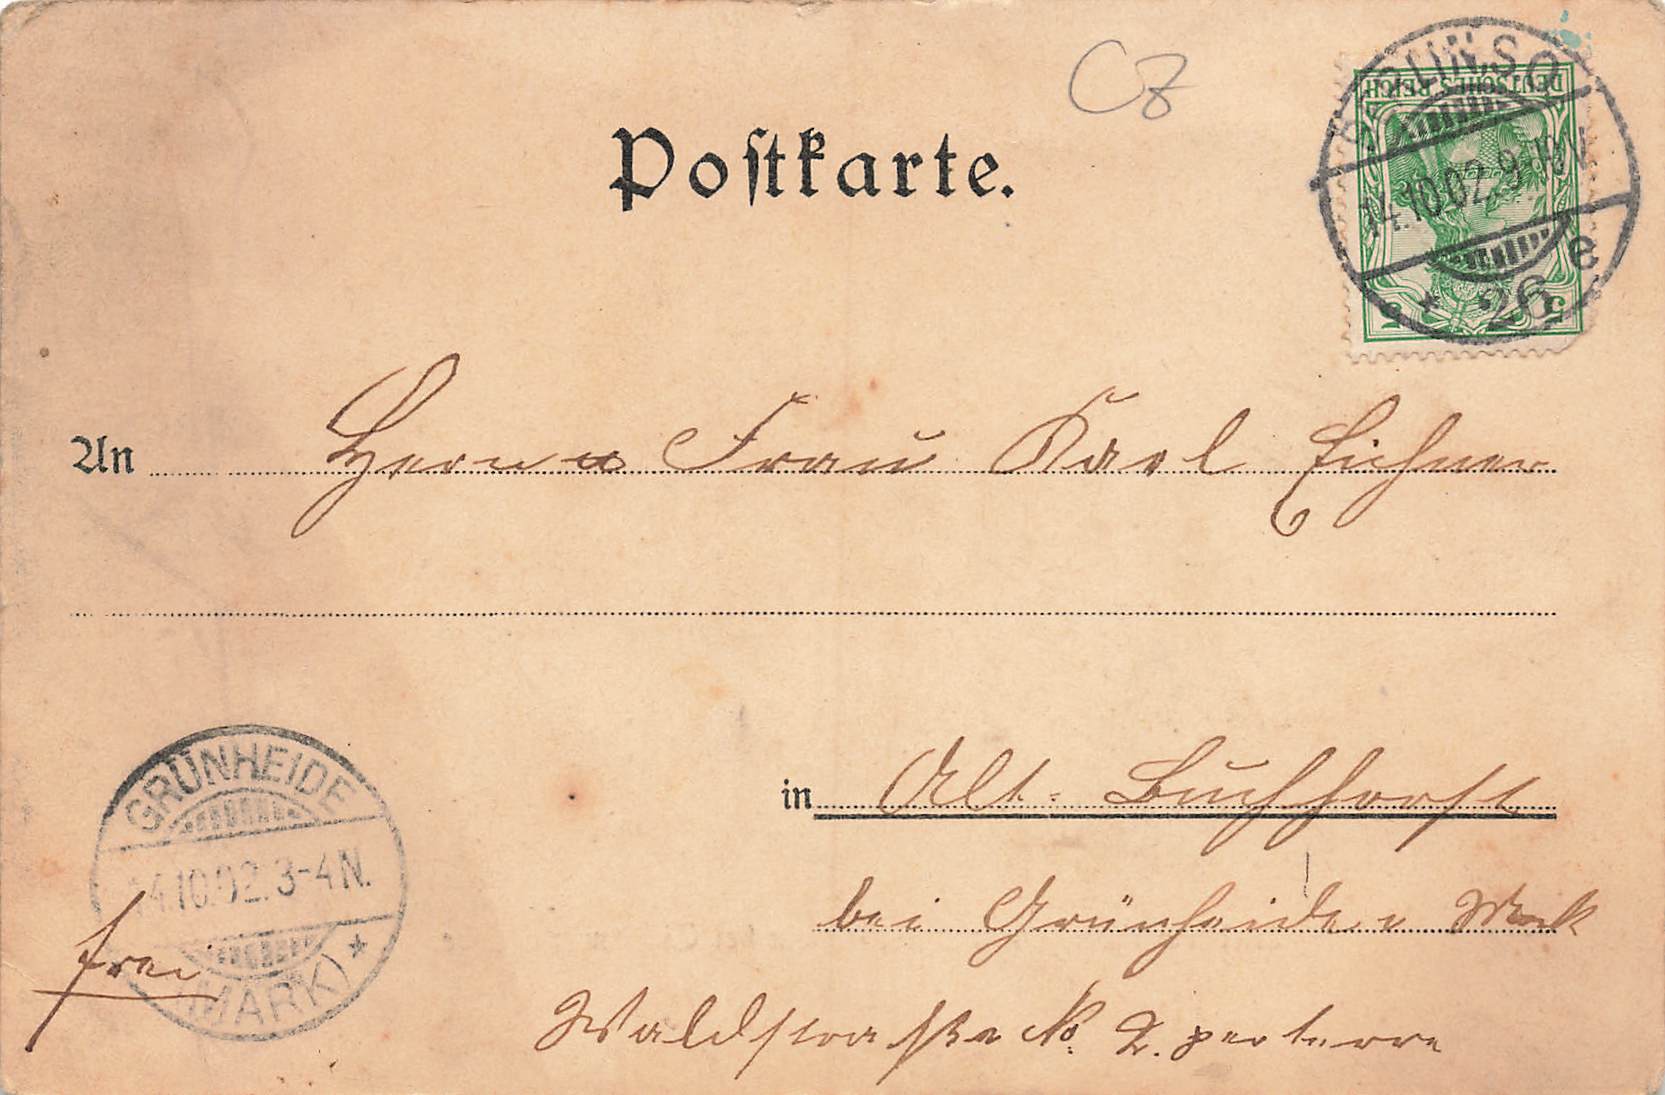 CZ
Postkarte.
BERLIN, S.O.
DEUTSCHES REICH
14.10.02. 9-10 V.
* 26 e
5 5
An Herrn u Frau Karl Eichner
in Alt-Buchhorst
bei Grünheide i Mark
Waldstraße No. 2. parterre
GRÜNHEIDE
14.10.02. 3-4 N.
(MARK) *
frei